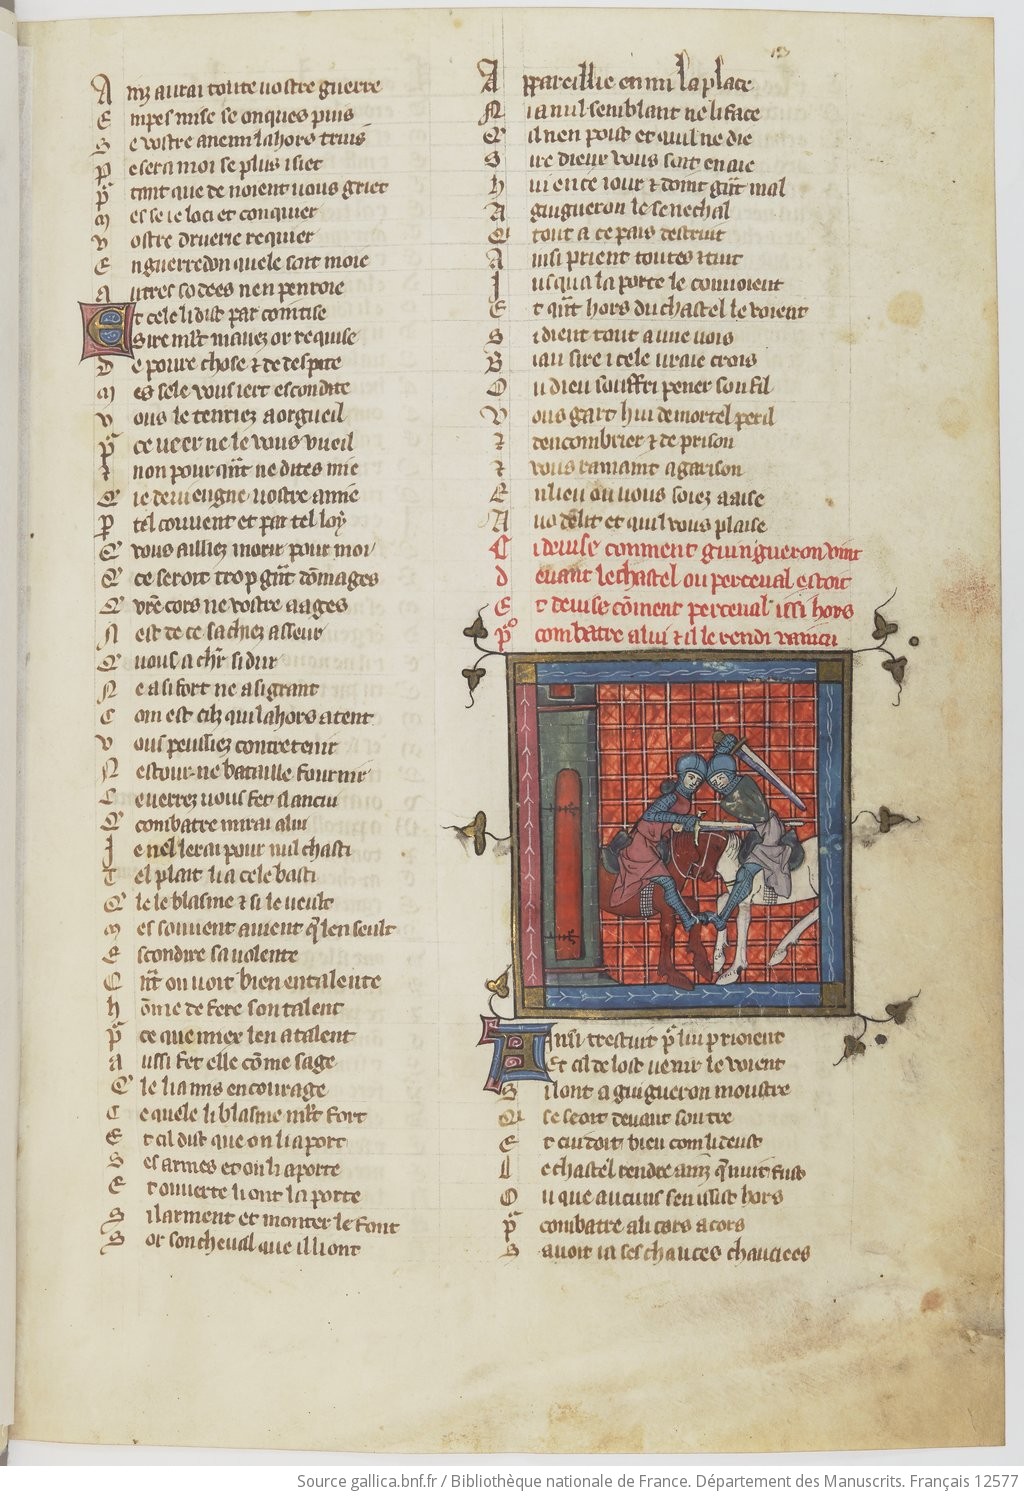 Anz aurai toute uostre guerre
Empes mise se onques puis
Se vostre anemi lahors truis
Pesera moi se plus i siet
ptant que de noient uous griet
Mes se ie loci et conquier
Vostre druerie requier
Enguerredon quele soit moie
Autres sodees nen penroie
Et cele li dist par cointise
Sire mlt mauez or requise
De poure chose & de despite
Mes sele vous iert escondite
Vous le tenriez a orgueil
pce ueer ne le vous vueil
& non pour qnt ne dites mie
Q ie deuiengne uostre amie
P tel couuent et par tel loy
Q vous ailliez morir pour moi
Q ce seroit trop gnt domages
Q vre cors ne vostre aages
Nest de ce sachiez asseur
Q uous a chr si dur
Ne a si fort ne a si grant
Com est cilz qui lahors atent
Vous peussiez contretenir
Nestour ne bataille fournir
Ce uerrez uous fet il ancui
Q combatre mirai a lui
Ie nel lerai pour nul chasti
Tel plait li a cele basti
Q le le blasme & si le ueult
Mes souuent auient q len seult
Escondire sa uolente
Cnt on uoit bien entalente
Home de fere son talent
pce que miex len atalent
Aussi fet elle come sage
Q le li a mis en courage
Ce quele li blasme mlt fort
Et cil dist que on li aport
Ses armes et on li aporte
Et ouuerte li ont la porte
Silarment et monter le font
Sor son cheual que il li ont
Appareillie enmi la place
Nia nul semblant ne li face
Qil nen poist et qui ne die
Sire diex vous soit en aie
Hui en ce iour & doint gnt mal
A guigueron le senechal
Qi tout a ce pais destruit
Ainsi prient toutes & tuit
Iusqua la porte le conuoient
Et qnt hors du chastel le voient
Si dient tout a une uois
Biau sire icele uraie crois
Ou dieu souffri pener son fil
Vous gart hui de mortel peril
& dencombrier & de prison
& vous ramaint a garison
En lieu ou uous soiez aaise
A uo delit et qui vous plaise
Ci deuise comment guingueron vint
deuant le chastel ou perceual estoit
Et deuise coment perceual issi hors
po combatre a lui & il le rendi vaincu
Ainsi trestuit p lui prioient
Et cil de lost uenir le voient
Silont a guigueron moustre
Qi se seoit deuant son tre
Et cuidoit bien com li deust
Le chastel rendre ainz q nuit fust
Ou que aucuns sen issist hors
p combatre a li cors a cors
Sauoit ia ses chauces chauciees
Source gallica.bnf.fr / Bibliothèque nationale de France. Département des Manuscrits. Français 12577